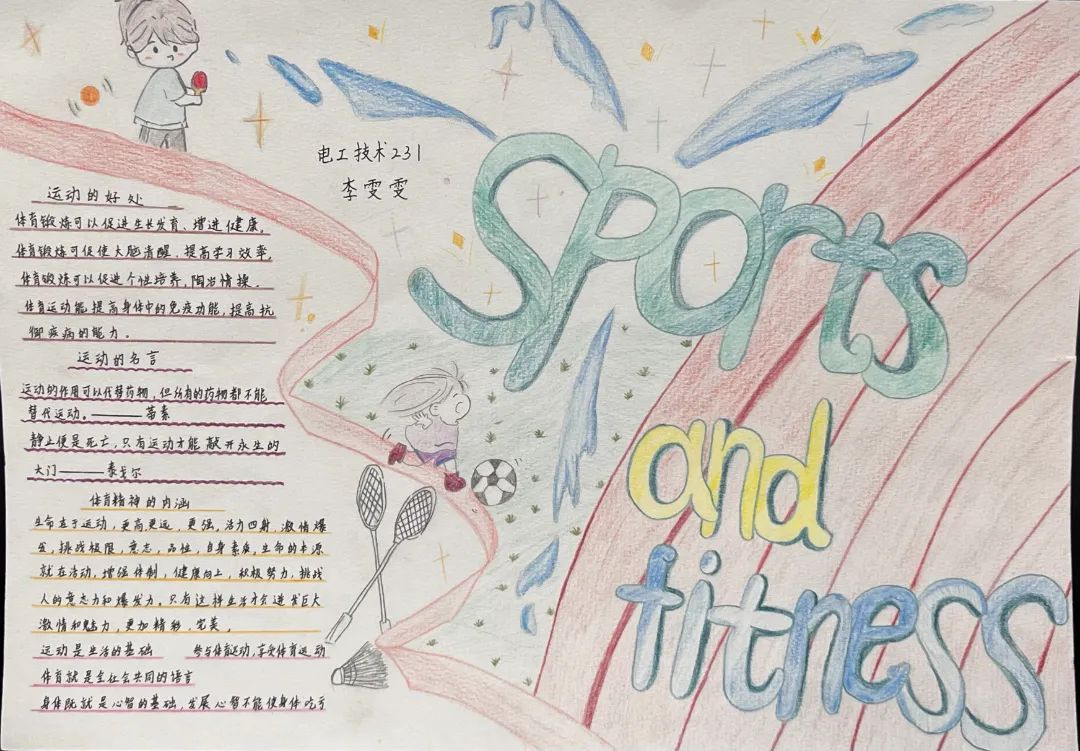 电工技术231
李雯雯
Sports
and
fitness
运动的好处
体育锻炼可以促进生长发育、增进健康,
体育锻炼可促使大脑清醒、提高学习效率,
体育锻炼可以促进个性培养,陶冶情操.
体育运动能提高身体中的免疫功能,提高抗
御疾病的能力.
运动的名言
运动的作用可以代替药物,但所有的药物都不能
替代运动。———蒂素
静止便是死亡,只有运动才能敲开永生的
大门———泰戈尔
体育精神的内涵
生命在于运动,更高更远,更强,活力四射,激情爆
发,挑战极限,意志,品性,自身素质,生命的本源
就在活动,增强体制,健康向上,积极努力,挑战
人的意志力和爆发力.只有这样生活才会迸发巨大
激情和魅力,更加精彩、完美,
运动是生活的基础 参与体育运动,享受体育运动
体育就是全社会共同的语言
身体既就是心智的基础,发展心智不能使身体吃亏